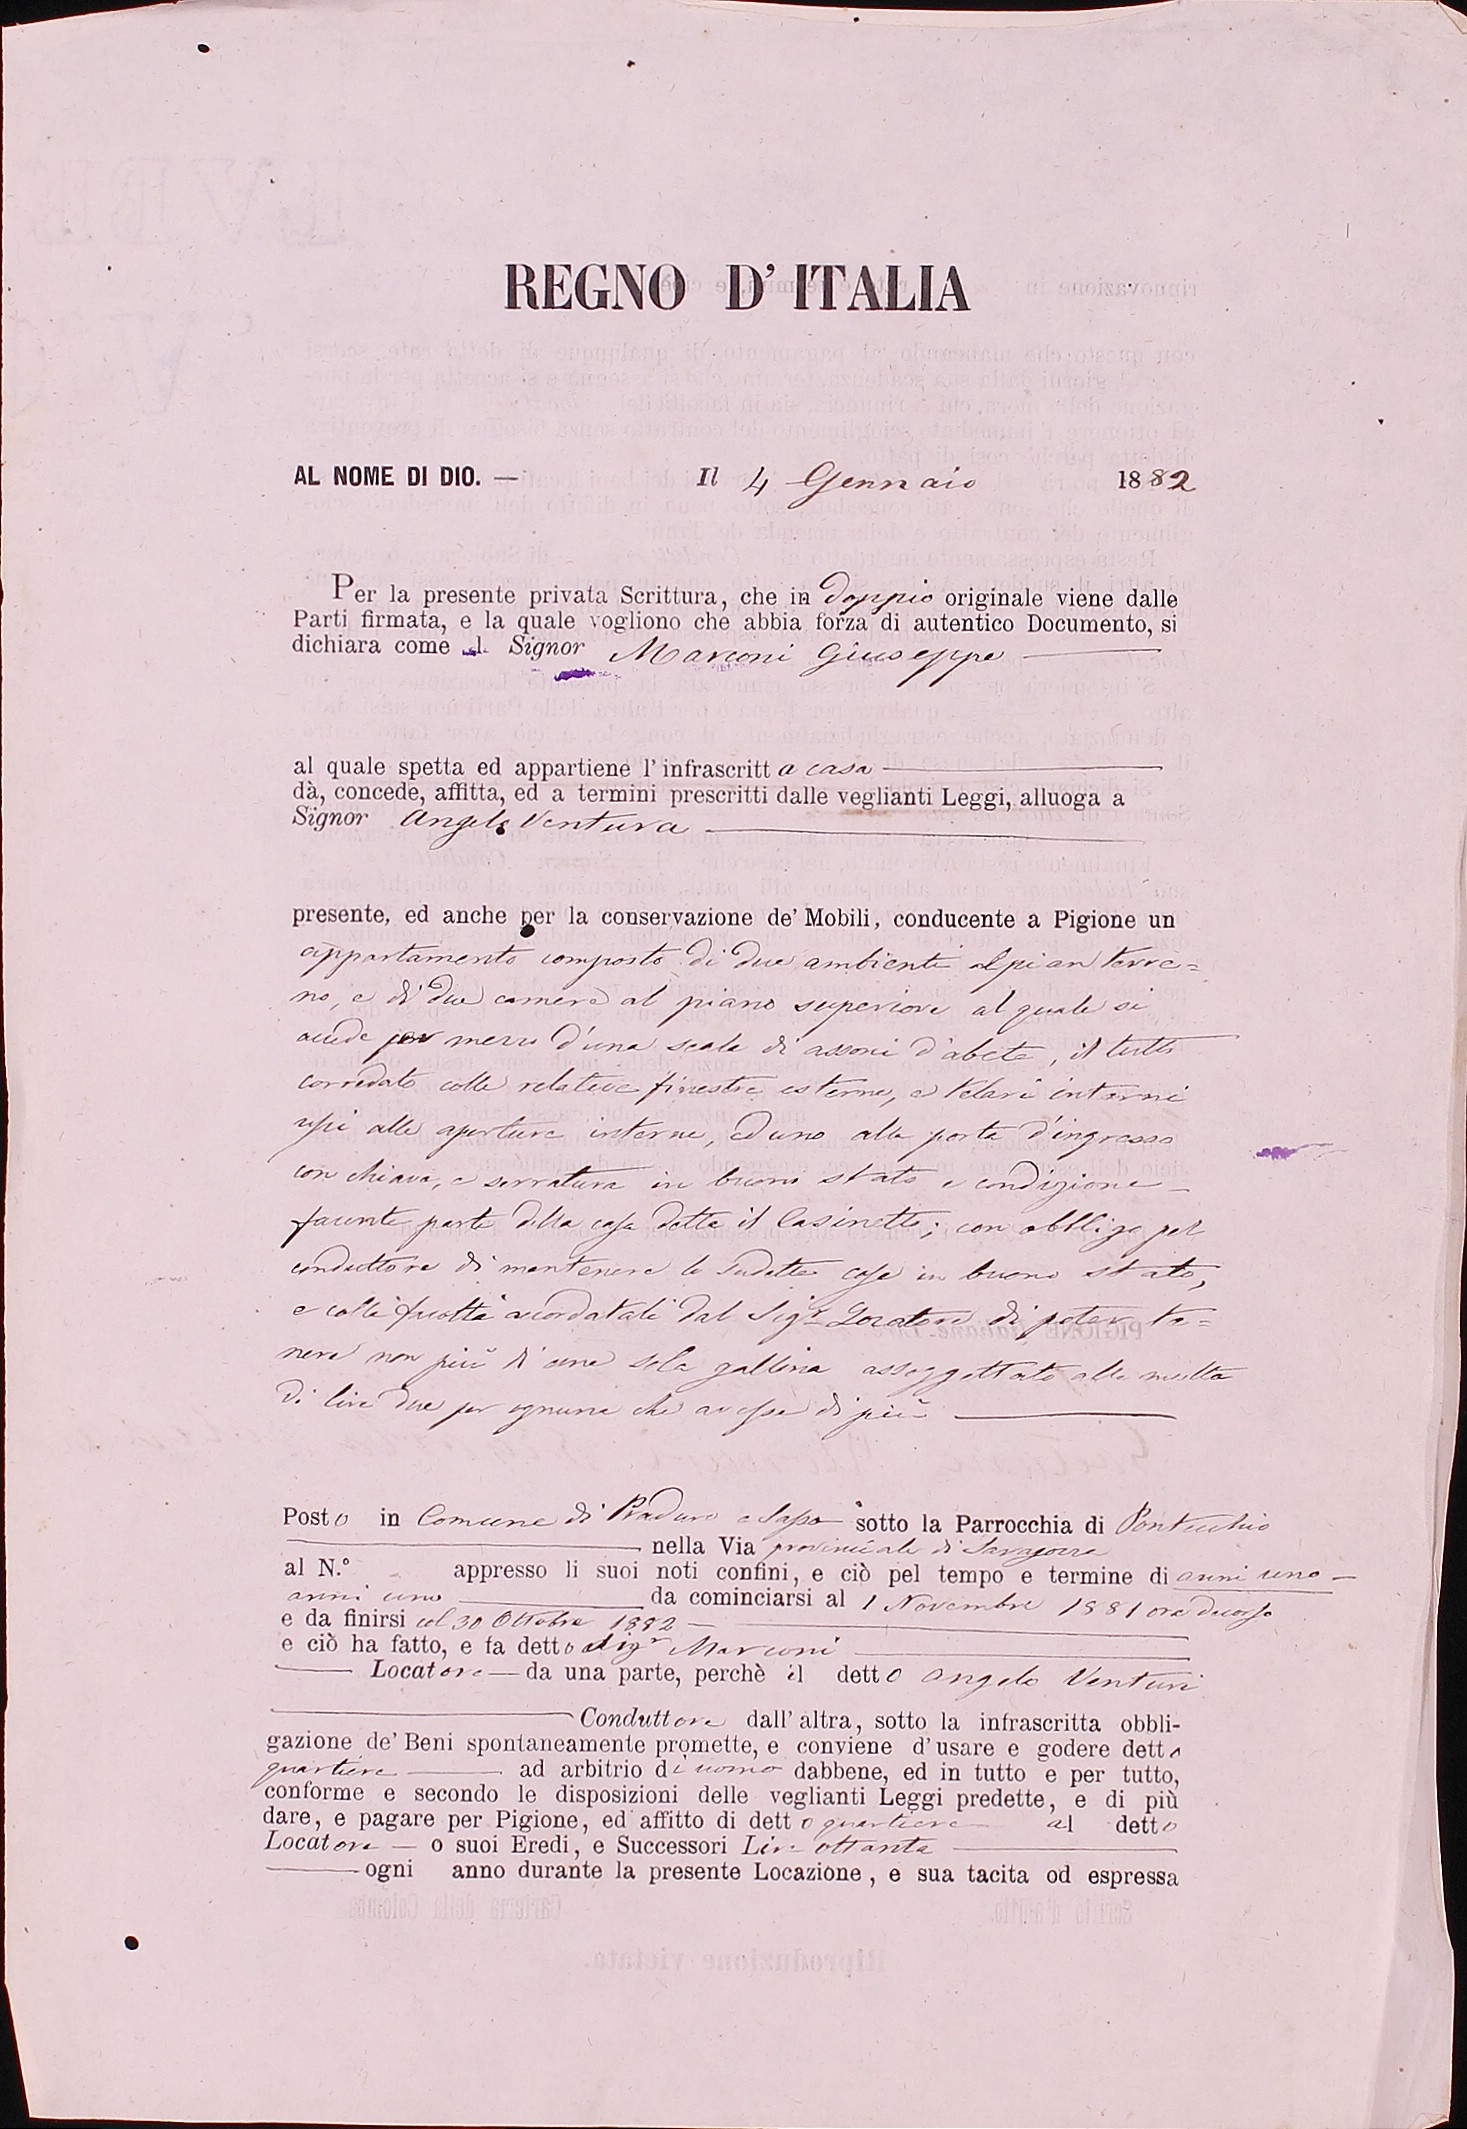 REGNO D' ITALIA
AL NOME DI DIO. — Il 4 Gennaio 1882
Per la presente privata Scrittura, che in doppio originale viene dalle
Parti firmata, e la quale vogliono che abbia forza di autentico Documento, si
dichiara come il Signor Marconi Giuseppe
al quale spetta ed appartiene l' infrascritta casa
dà, concede, affitta, ed a termini prescritti dalle veglianti Leggi, alluoga a
Signor Angelo Ventura
presente, ed anche per la conservazione de' Mobili, conducente a Pigione un
appartamento composto di due ambienti al pian terre=
no, e di due camere al piano superiore al quale si
accede per mezzo d'una scala di assoni d'abete, il tutto
corredato colle relative finestre esterne, e telari interni
usci alle aperture interne, ed uno alla porta d'ingresso
con chiave, e serratura in buono stato e condizione
facente parte della casa detta il Casinetto; con obbligo pel
conduttore di mantenere le sudette case in buono stato,
e colla facoltà accordatali dal Sigr Locatore di poter te=
nere non più di una sola gallina assoggettato alla multa
di lire due per ognuna che avesse di più
Posto in Comune di Praduro e Sasso sotto la Parrocchia di Pontecchio
nella Via provinciale di
al N.° appresso li suoi noti confini, e ciò pel tempo e termine di anni uno
anni uno da cominciarsi al 1 Novembre 1881 ora decorso
e da finirsi col 30 Ottobre 1882
e ciò ha fatto, e fa detto Sigr Marconi
Locatore — da una parte, perchè il detto Angelo Venturi
Conduttore dall' altra, sotto la infrascritta obbli-
gazione de' Beni spontaneamente promette, e conviene d' usare e godere detto
quartiere ad arbitrio di uomo dabbene, ed in tutto e per tutto,
conforme e secondo le disposizioni delle veglianti Leggi predette, e di più
dare, e pagare per Pigione, ed affitto di detto quartiere al detto
Locatore — o suoi Eredi, e Successori Lire ottanta
ogni anno durante la presente Locazione, e sua tacita od espressa